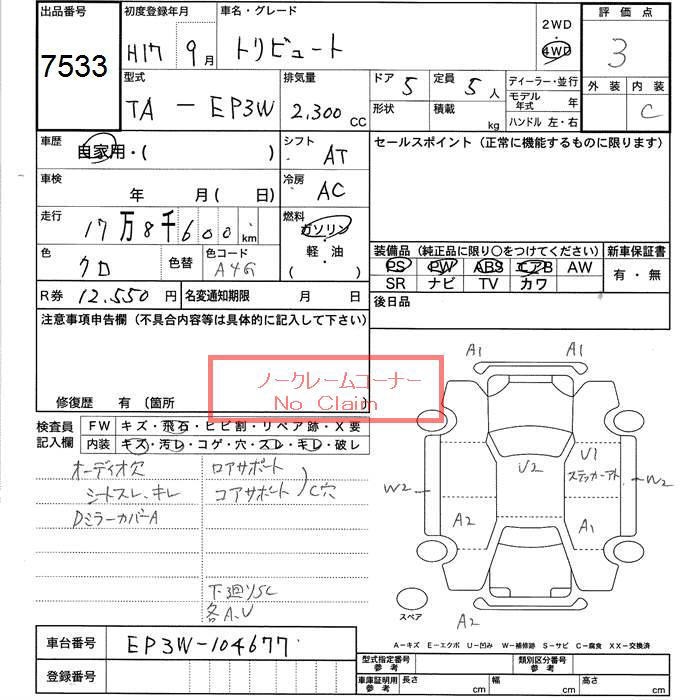 出品番号
7533
初度登録年月
H17 9月
車名・グレード
トリビュート
2WD
・
4WD
評価点
3
外装 内装
C
型式
TA - EP3W
排気量
2,300 CC
ドア 5
定員 5人
形状
積載 kg
ディーラー・並行
モデル年式 年
ハンドル 左・右
車歴
自家用・( )
シフト
AT
セールスポイント (正常に機能するものに限ります)
車検
年 月 ( 日)
冷房
AC
走行
17万8千600 km
燃料
ガソリン
・
軽・油
( )
色
クロ
色替
色コード
A4G
装備品 (純正品に限り○をつけてください)
新車保証書
PS PW ABS エアB AW
SR ナビ TV カワ
有・無
R券 12.550 円
名変通知期限 月 日
後日品
注意事項申告欄 (不具合内容等は具体的に記入して下さい)
ノークレームコーナー
No Claim
修復歴 有 (箇所
検査員記入欄
FW キズ・飛石・ヒビ割・リペア跡・X要
内装 キズ・汚レ・コゲ・穴・スレ・キレ・破レ
オーディオ欠
シートスレ、キレ
Dミラーカバー A
ロアサポート
コアサポート
C穴
下廻りSC
各A、U
A1 A1
U2
U1
ステッカーアト
W2 W2
A2 A1
スペア
A2
A-キズ E-エクボ U-凹み W-補修跡 S-サビ C-腐食 XX-交換済
車台番号 EP3W-104677
登録番号
型式指定番号 参考
類別区分番号 参考
車庫証明用 参考
長さ cm
幅 cm
高さ cm